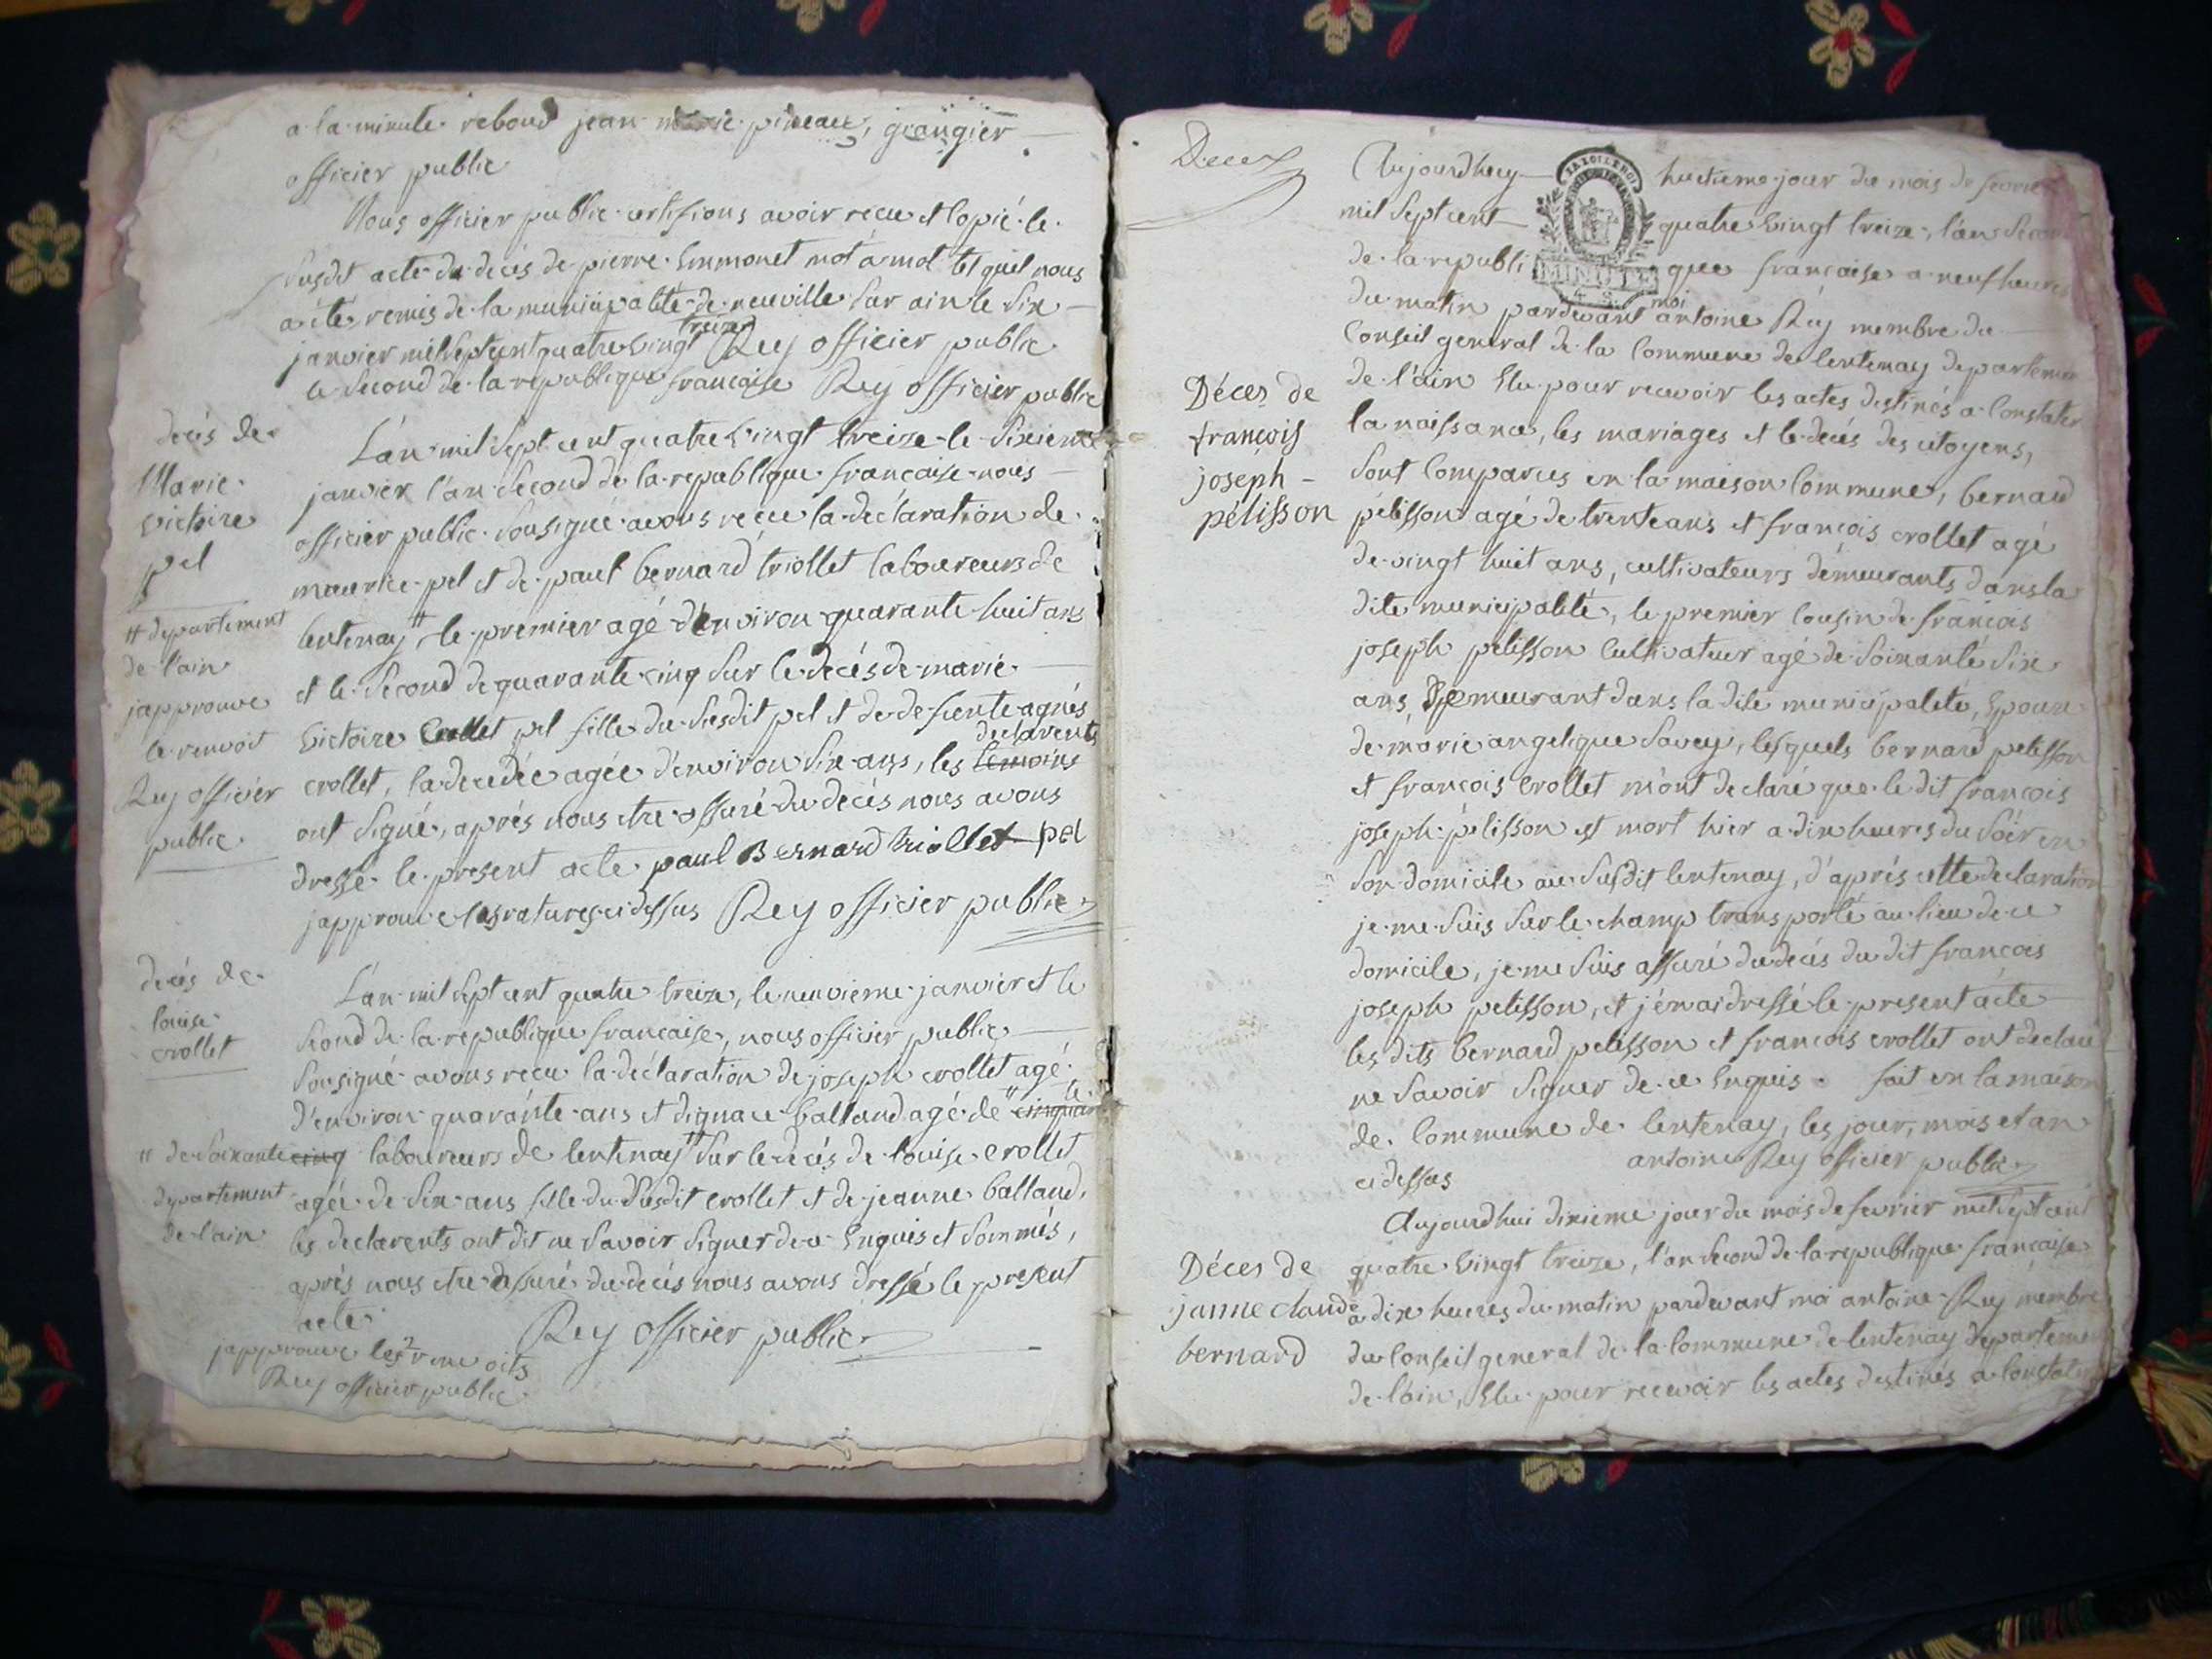 a la minute rebond jean marie pineau, grangier
officier public
Nous officier public certifions avoir recu et copié le
susdit acte du decés de pierre Emmonet mot a mot tel quil nous
a été remis de la municipalité de neuville sur ain le six
janvier mil sept cent quatre vingt treize Rey officier public
le second de la republique francaise Rey officier public
decés de
Marie
victoire
pel
L'an mil sept cent quatre vingt treize le sixieme
janvier l'an second de la republique francaise nous
officier public sousigné avons recu la déclaration de
maurice pel et de paul bernard triollet laboureurs de
lentenay # le premier agé d'environ quarante huit ans
et le second de quarante cinq sur le decés de marie
victoire pel fille du susdit pel et de defunte agnés
crollet, la decedée agée d'environ six ans, les temoins declarents
ont signé, aprés nous etre assuré du decés nous avons
dressé le present acte paul Bernard triollet pel
japprouve les ratures ci dessus Rey officier public
# departement
de l'ain
japprouve
le renvoit
Rey officier
public
decés de
louise
crollet
L'an mil sept cent quatre treize, le neuvieme janvier et le
scond de la republique francaise, nous officier public
sousigné avons recu la déclaration de joseph crollet agé
d'environ quarante ans et dignace balland agé de
cinq laboureurs de lentenay # sur le decés de louise crollet
agée de six ans fille du susdit crollet et de jeanne balland,
les declarents ont dit ne savoir signer de ce enquis et sommés,
aprés nous etre assuré du decés nous avons dressé le present
acte
Rey officier public
" de soixante
departement
de l'ain
japprouve les 2 renvoits
Rey officier public
Deces
Aujourdhuy huitieme jour du mois de fevrier
mil sept cent quatre vingt treize, l'an second
de la republi que francaise a neuf heures
MINUTE
4. S.
du matin pardevant moi antoine Rey membre du
Conseil general de la Commune de lentenay departement
de l'ain Elu pour recevoir les actes destinés a Constater
la naissance, les mariages et le decés des citoyens,
sont Comparus en la maison Commune, bernard
pélisson agé de trente ans et francois crollet agé
de vingt huit ans, cultivateurs démeurants dans la
dite municipalité, le premier Cousin de francois
joseph pelisson Cultivateur agé de soixante six
ans, Demeurant dans la dite municipalité, Epoux
de marie angelique Savey, lesquels bernard pelisson
et francois Crollet m'ont declaré que le dit francois
joseph pélisson est mort hier a dix heures du soir en
son domicile au susdit lentenay, d'aprés cette declaration
je me suis sur le champ transporté au lieu de ce
domicile, je me suis assuré du decés du dit francois
joseph pelisson, et j'en ai dressé le present acte
les dits bernard pelisson et francois crollet ont declaré
ne savoir signer de ce Enquis. fait en la maison
de Commune de lentenay, les jour, mois et an
ci dessus antoine Rey officier public
Déces de
francois
joseph -
pélisson
Aujourdhui dixieme jour du mois de fevrier mil sept cent
quatre vingt treize, l'an second de la republique francaise
a dix heures du matin pardevant moi antoine Rey membre
du Conseil general de la Commune de lentenay departement
de l'ain, Elu pour recevoir les actes destinés a Constater
Déces de
janne claude
bernard